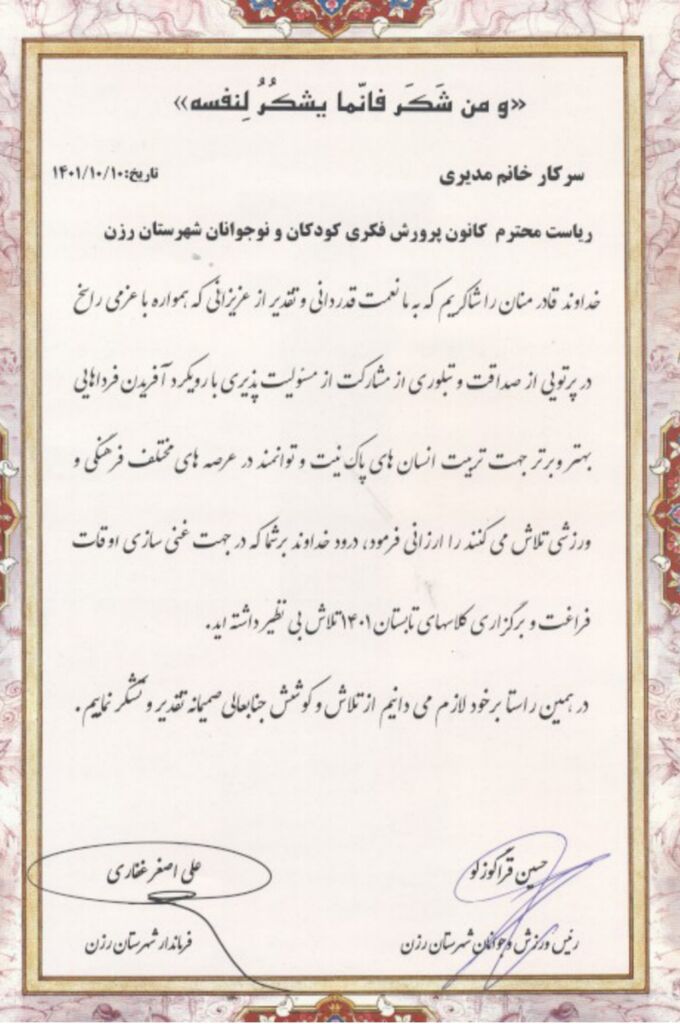 «و من شَکَرَ فانّما یشکُرُ لِنفسه»
سرکار خانم مدیری
تاریخ:۱۴۰۱/۱۰/۱۰
ریاست محترم کانون پرورش فکری کودکان و نوجوانان شهرستان رزن
خداوند قادر منان را شاکریم که به ما نعمت قدردانی و تقدیر از عزیزانی که همواره با عزمی راسخ
در پرتویی از صداقت و تبلوری از مشارکت از مسئولیت پذیری با رویکرد آفریدن فرداهایی
بهتر و برتر جهت تربیت انسان های پاک نیت و توانمند در عرصه های مختلف فرهنگی و
ورزشی تلاش می کنند را ارزانی فرمود، درود خداوند بر شما که در جهت غنی سازی اوقات
فراغت و برگزاری کلاسهای تابستان ۱۴۰۱ تلاش بی نظیر داشته اید.
در همین راستا بر خود لازم می دانیم از تلاش و کوشش جنابعالی صمیمانه تقدیر و تشکر نماییم.
حسین قراگوزلو
علی اصغر غفاری
رئیس ورزش و جوانان شهرستان رزن
فرماندار شهرستان رزن